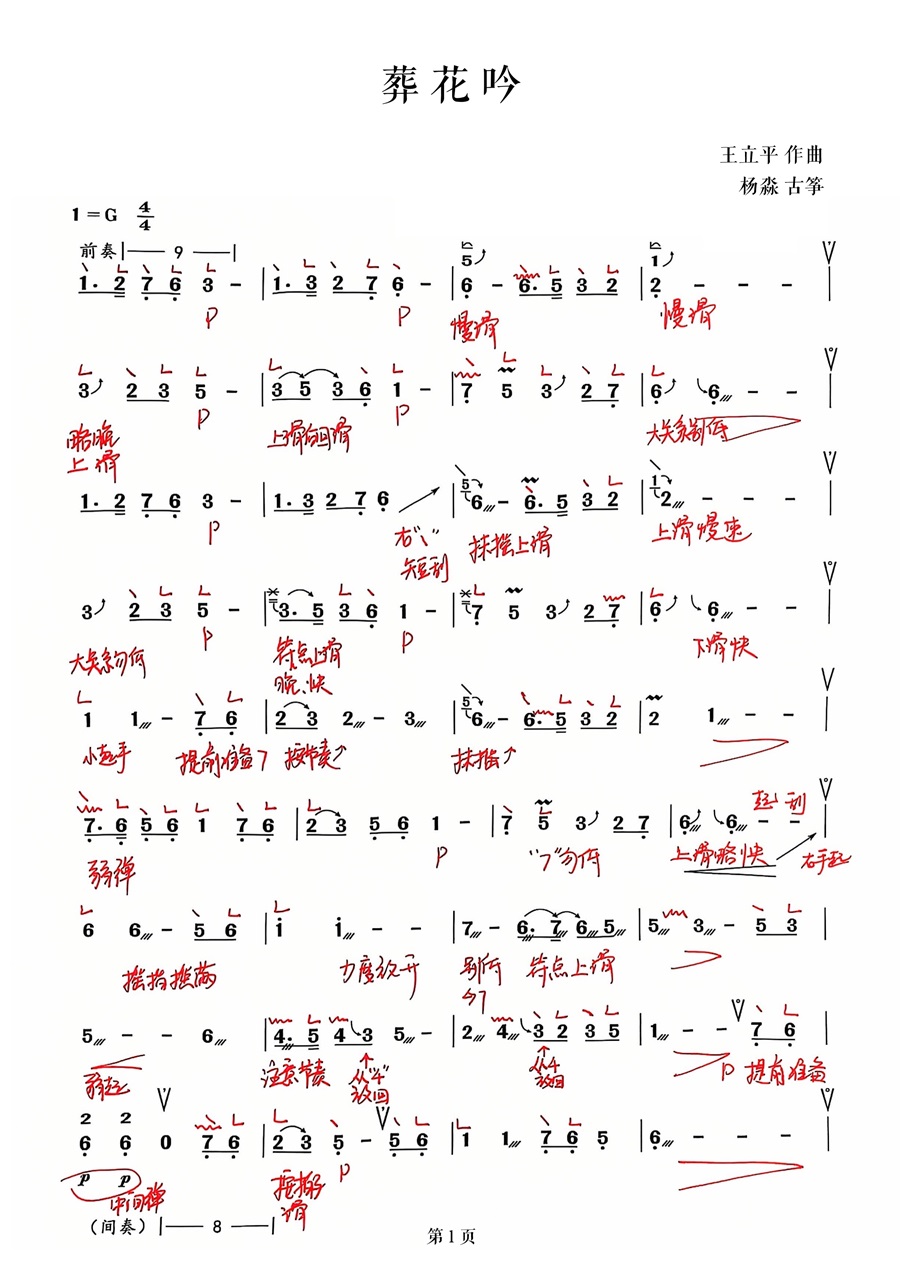 葬花吟
王立平 作曲
杨淼 古筝
1=G 4/4
前奏|—— 9 ——|
5 1
1. 2 7 6 3 – | 1. 3 2 7 6 – | 6 – 6. 5 3 2 | 2 – – – |
p p 慢滑 慢滑
3 2 3 5 – | 3 5 3 6 1 – | 7 5 3 2 7 | 6 6 – – |
p p
略晚上滑 上滑的回滑 大关系别低
1. 2 7 6 3 – | 1. 3 2 7 6 | 5 6 – 6. 5 3 2 | 1 2 – – – |
p 右"\" 短刮 抹摇上滑 上滑慢速
3 2 3 5 – | 3. 5 3 6 1 – | 7 5 3 2 7 | 6 6 – – |
大关系勿低 p 符点上滑 晚、快 p 下滑快
1 1 – 7 6 | 2 3 2 – 3 – | 5 6 – 6. 5 3 2 | 2 1 – – |
小起手 提前准备7 按节奏 抹摇
起刮
7. 6 5 6 1 7 6 | 2 3 5 6 1 – | 7 5 3 2 7 | 6 6 – – |
弱弹 p "7"勿低 上滑略快 右手起
6 6 – 5 6 | i i – – | 7 – 6. 7 6 5 | 5 3 – 5 3 |
摇指摇满 力度放开 别低 4 7 符点上滑
5 – – 6 | 4. 5 4 3 5 – | 2 4 3 2 3 5 | 1 – – 7 6 |
弱起 注意节奏 从"4"放回 从4放回 p 提前准备
2 2
6 6 0 7 6 | 2 3 5 – 5 6 | 1 1 7 6 5 | 6 – – – |
p p 中间弹 p
(间奏) |—— 8 ——|
第 1 页